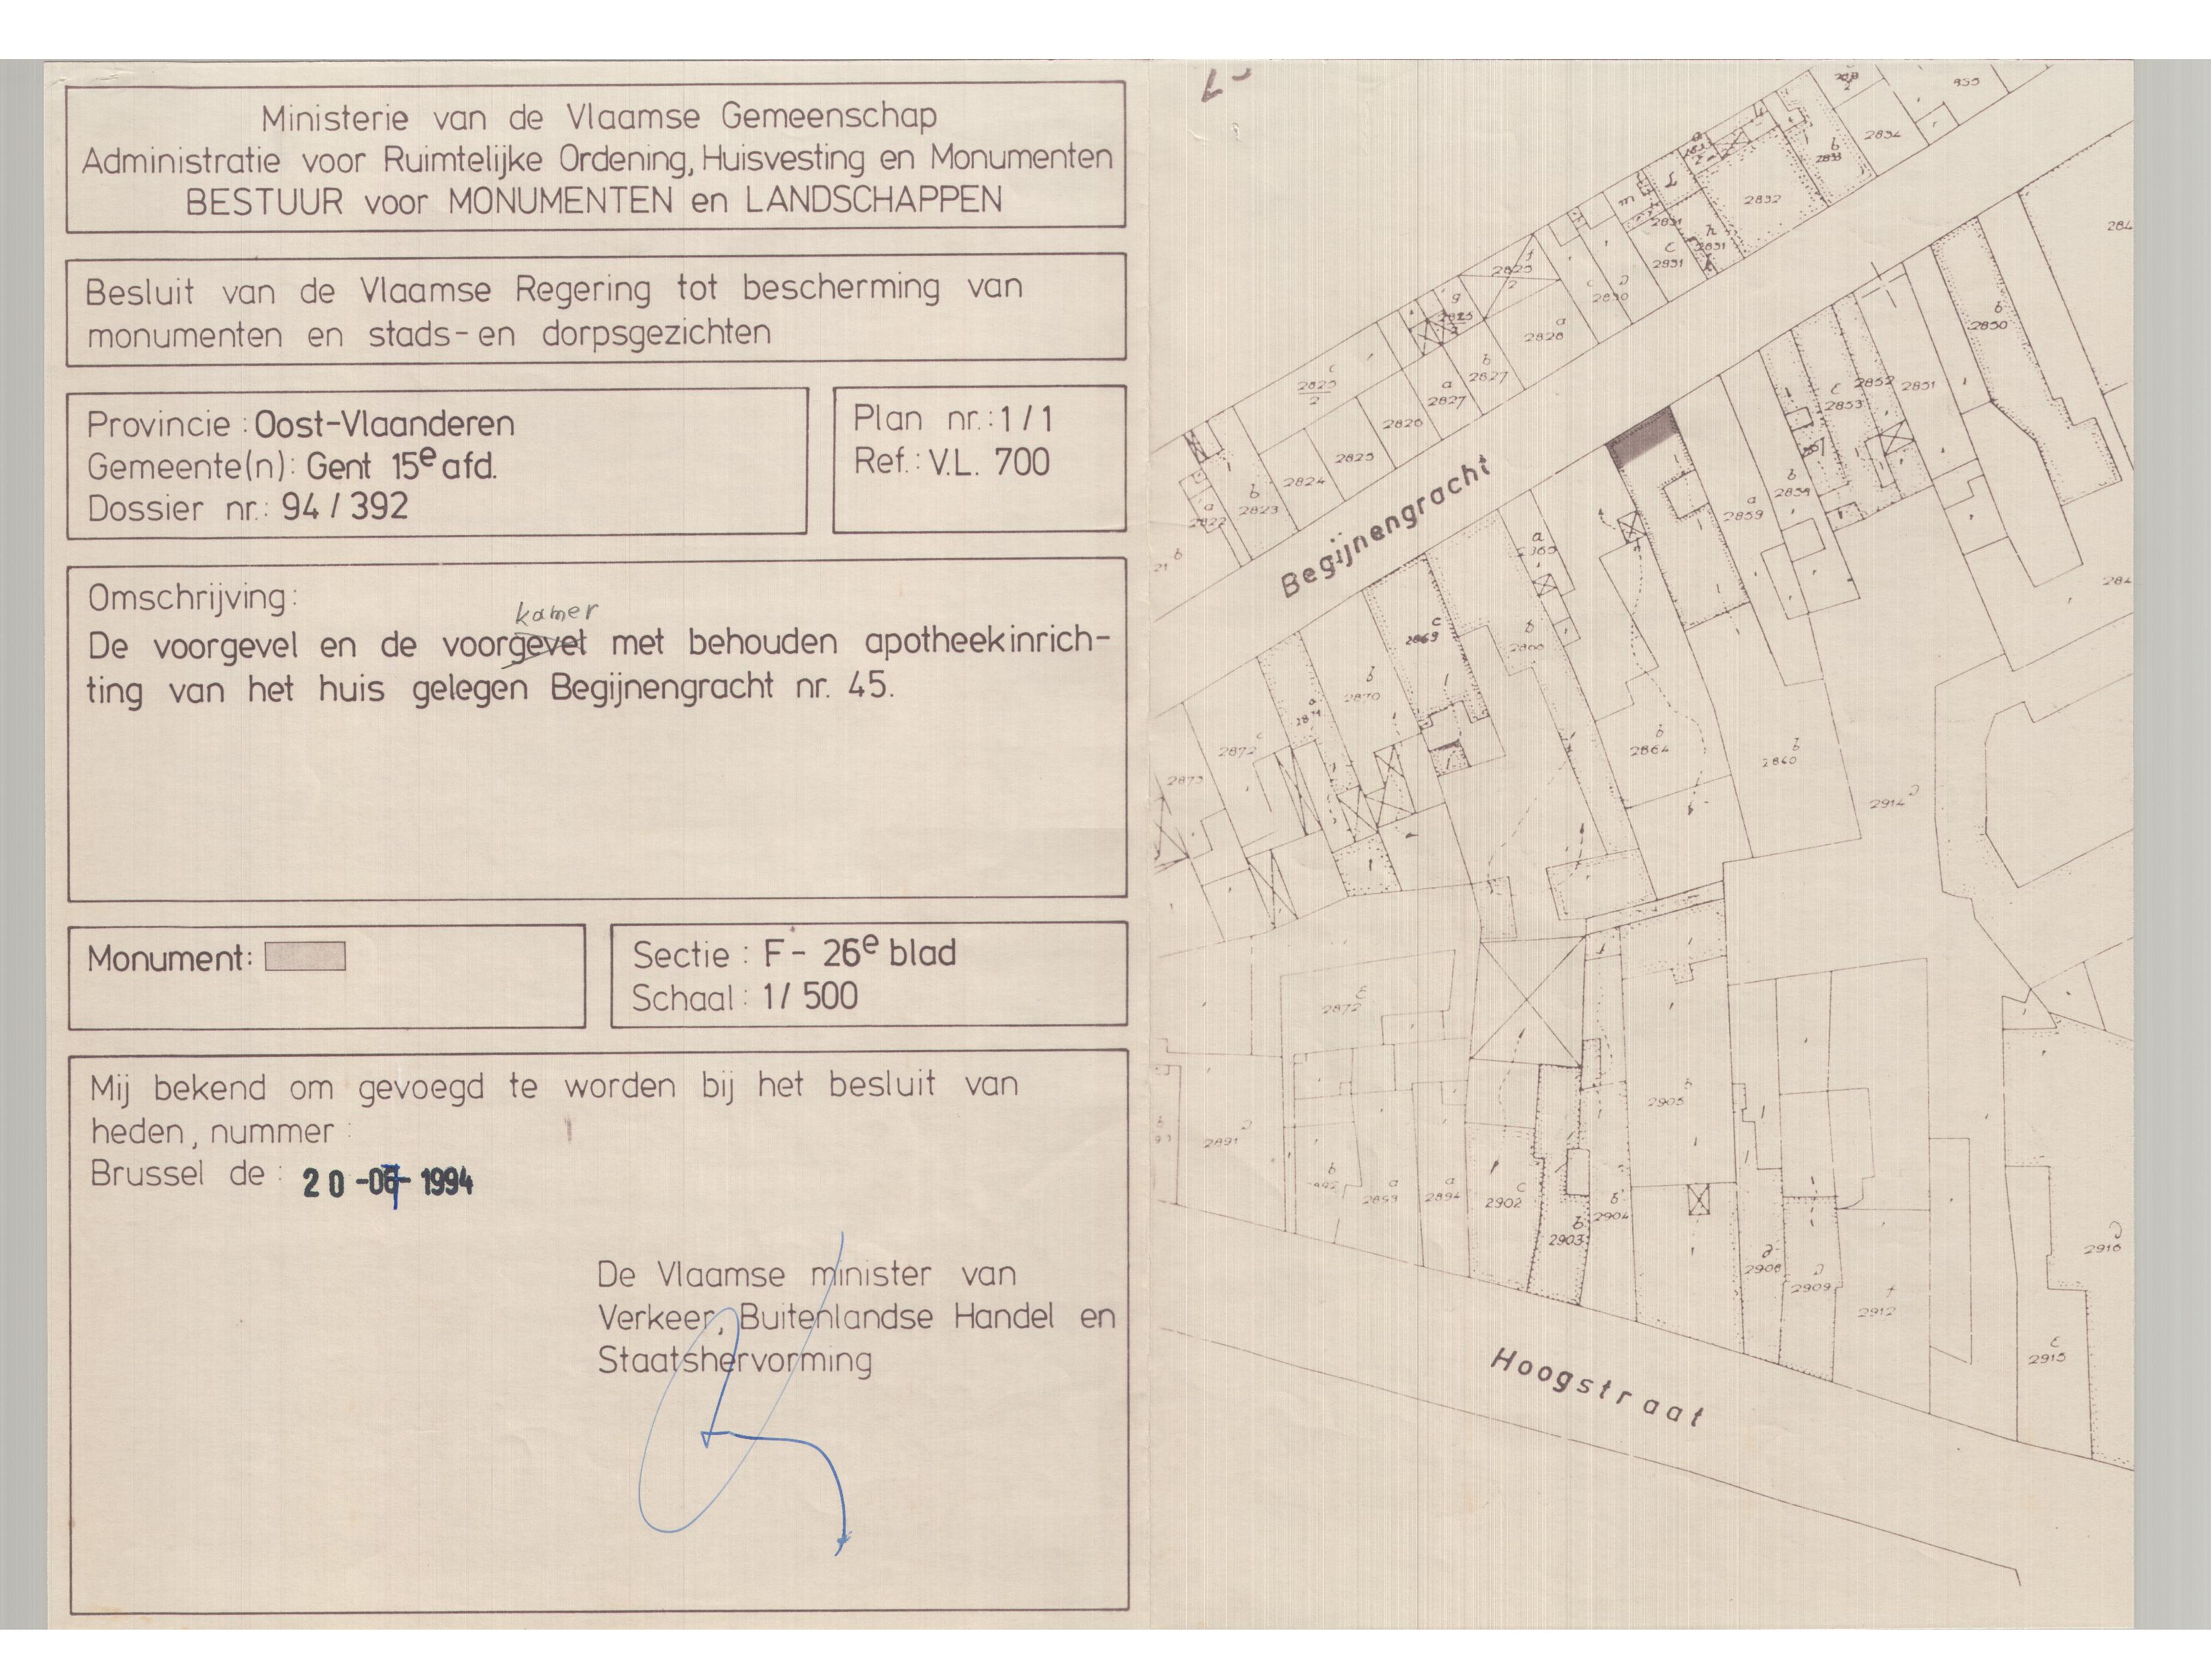 Ministerie van de Vlaamse Gemeenschap
Administratie voor Ruimtelijke Ordening, Huisvesting en Monumenten
BESTUUR voor MONUMENTEN en LANDSCHAPPEN
Besluit van de Vlaamse Regering tot bescherming van
monumenten en stads- en dorpsgezichten
Provincie : Oost-Vlaanderen
Gemeente(n): Gent 15e afd.
Dossier nr.: 94 / 392
Plan nr.: 1 / 1
Ref.: V.L. 700
Omschrijving:
kamer
De voorgevel en de voorgevel met behouden apotheekinrich-
ting van het huis gelegen Begijnengracht nr. 45.
Monument:
Sectie : F - 26e blad
Schaal : 1 / 500
Mij bekend om gevoegd te worden bij het besluit van
heden, nummer :
Brussel de : 20 -07- 1994
De Vlaamse minister van
Verkeer, Buitenlandse Handel en
Staatshervorming
Begijnengracht
Hoogstraat
2834
b
2833
2832
h
2831
c
2831
2830
a
2828
b
2827
a
2827
2826
2825
2824
b
2823
a
2822
c
2825
2
b
2850
2851
2852
c
2853
a
2859
b
2860
b
2864
c
2869
b
2870
c
2872
2873
2914
2872
2891
a
2893
a
2894
c
2902
b
2903
b
2904
2905
2908
2909
2912
c
2915
2916